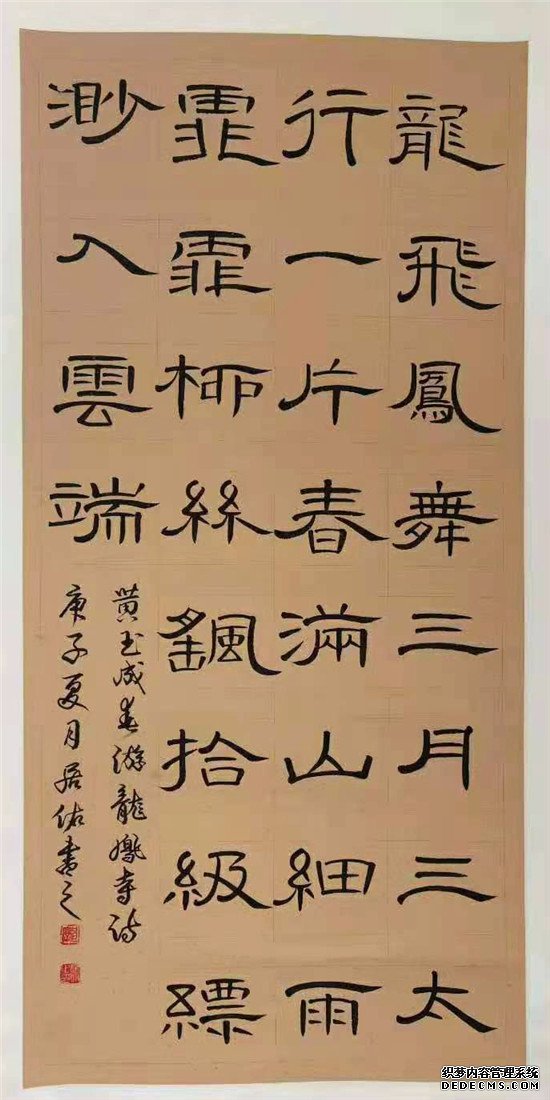 龍飛鳳舞三月三太
行一片春滿山細雨
霏霏柳絲颻拾級縹
渺入雲端
黄玉成春游龍鳳寺詩
庚子夏月居佑書之
织梦内容管理系统
DEDECMS.COM